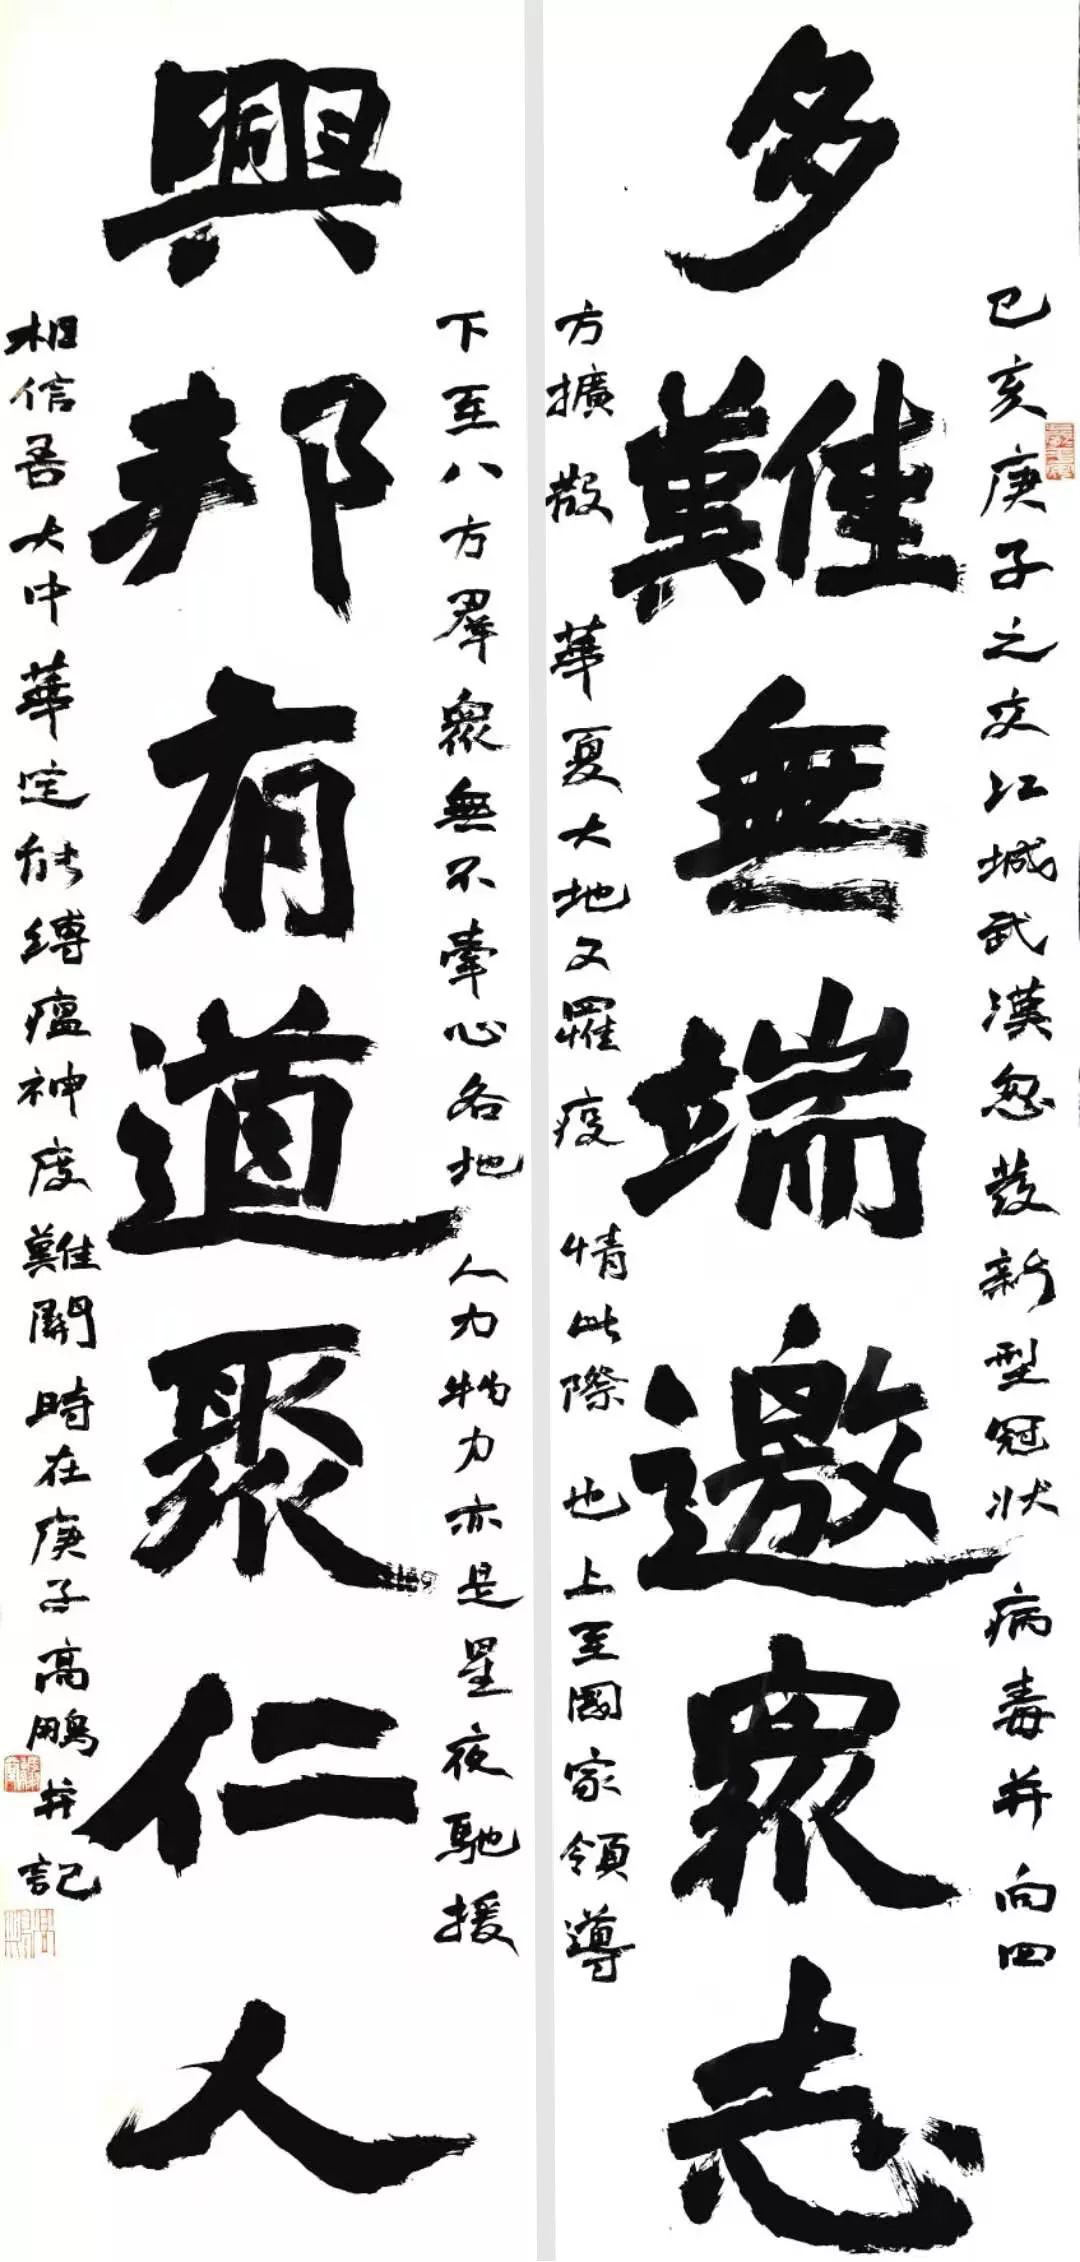 多難無端邀眾志
己亥庚子之交江城武漢忽發新型冠狀病毒并向四
方擴散華夏大地又罹疫情此際也上至國家領導
興邦有道聚仁人
下至八方群眾無不牽心各地人力物力亦是星夜馳援
相信吾大中華定能縛瘟神度難關時在庚子高鵬并記